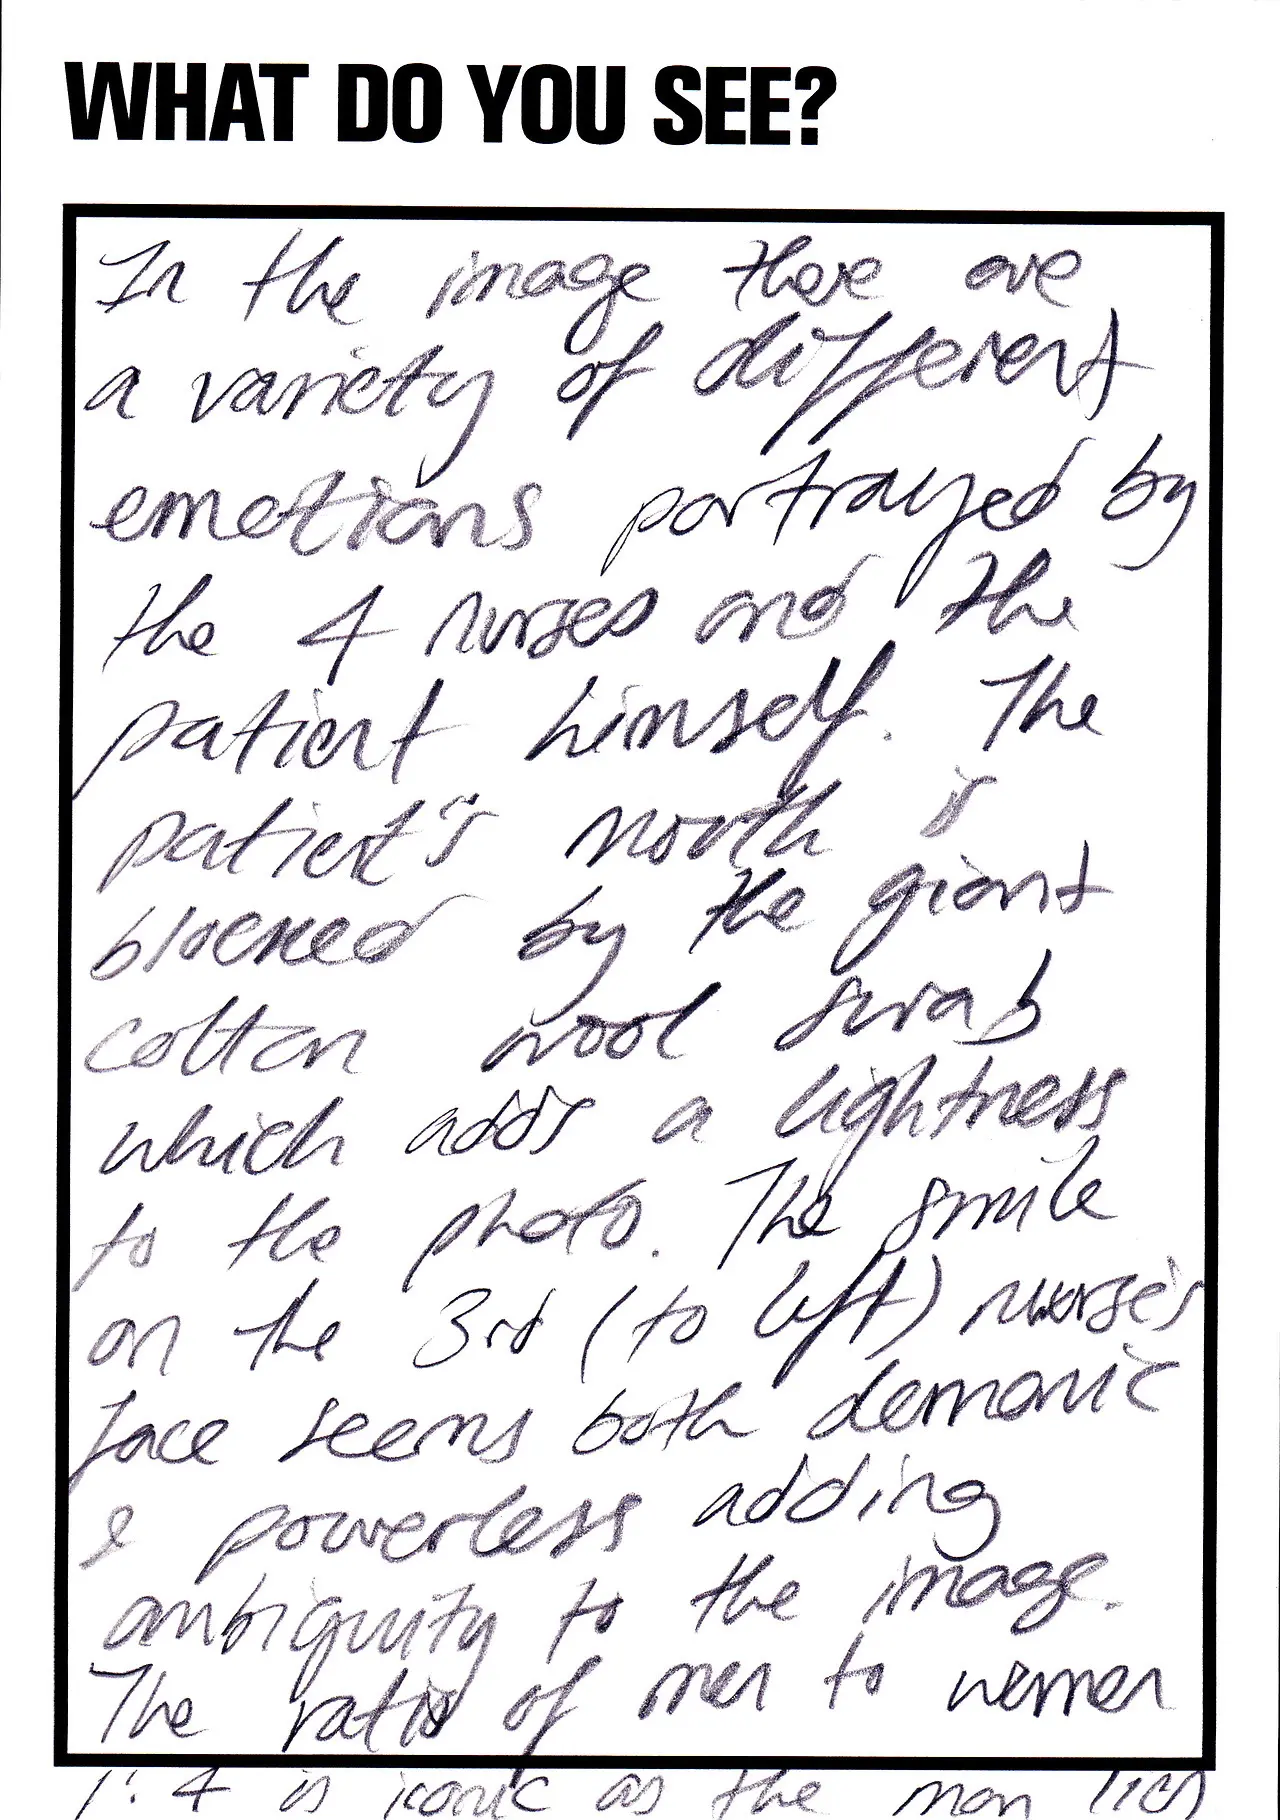 WHAT DO YOU SEE?
In the image there are
a variety of different
emotions portrayed by
the 4 nurses and the
patient himself. The
patient's mouth is
blocked by the giant
cotton wool swab
which adds a lightness
to the photo. The smile
on the 3rd (to left) nurse's
face seems both demonic
& powerless adding
ambiguity to the image.
The ratio of men to women
1:4 is iconic as the man lies